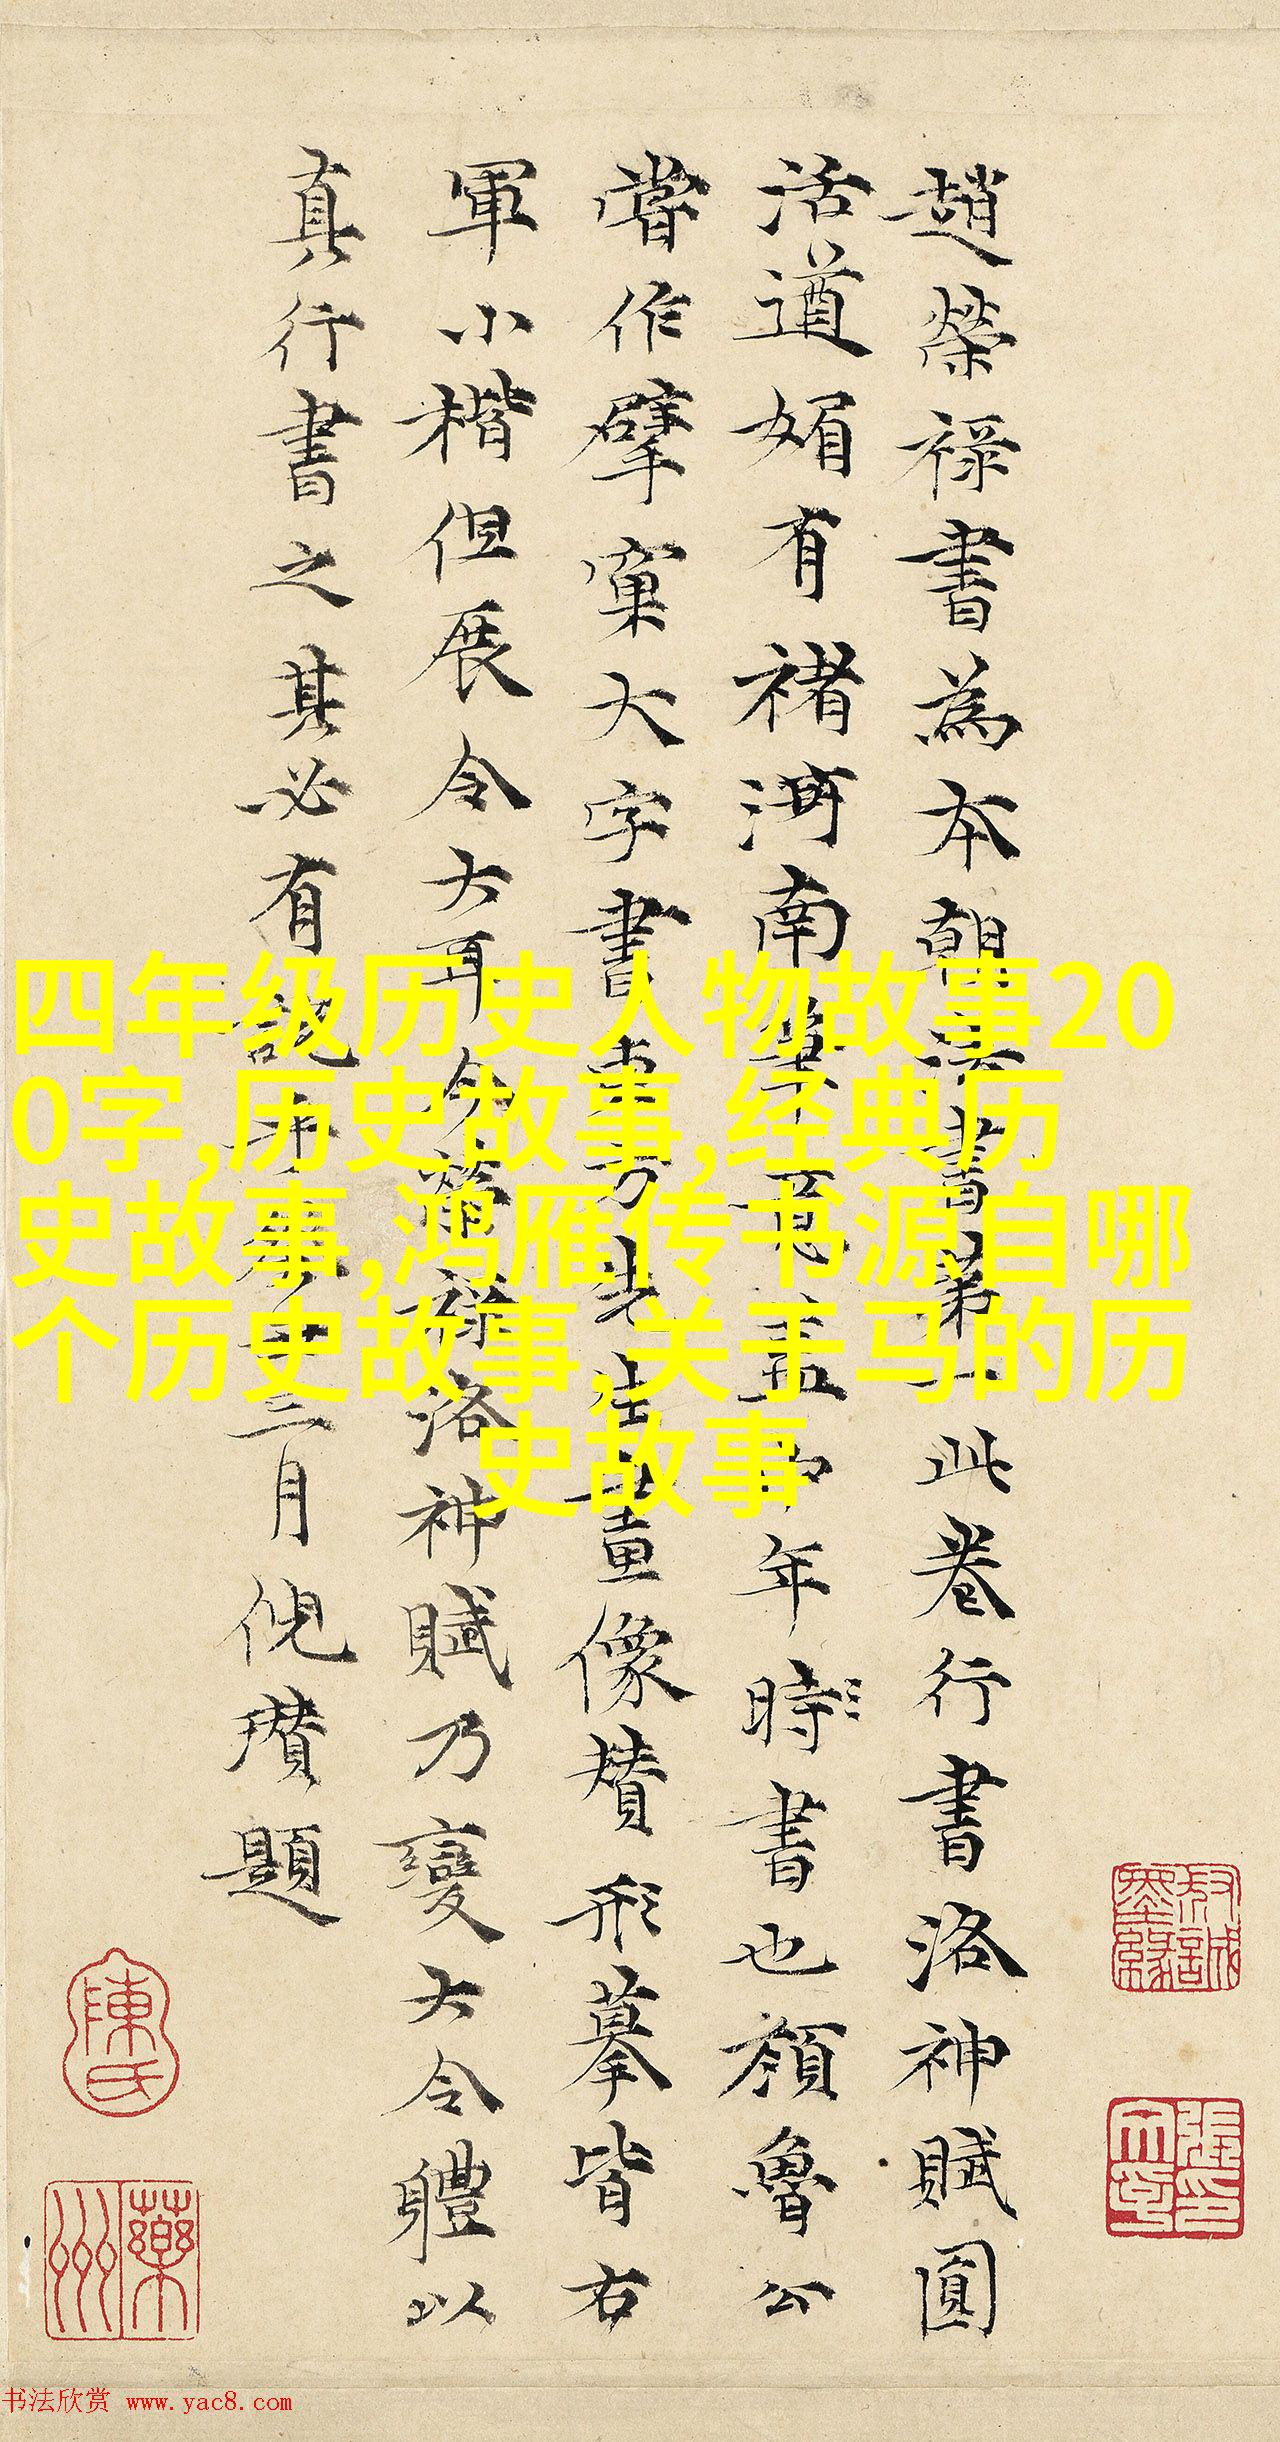 趙榮祿書為本朝書第一此卷行書洛神賦圓
活遒媚有褚河南筆意蓋中年時書也顏魯公
嘗作擘窠大字書東方先生畫像贊形摹皆右
軍小楷但展令大耳今榮祿洛神賦乃變大令體以
真行書之其必有說乎三月倪瓚題
四年级历史人物故事20
0字,历史故事,经典历
史故事,鸿雁传书源自哪
个历史故事,关于马的历
史故事
陳氏
书法欣赏 www.yac8.com